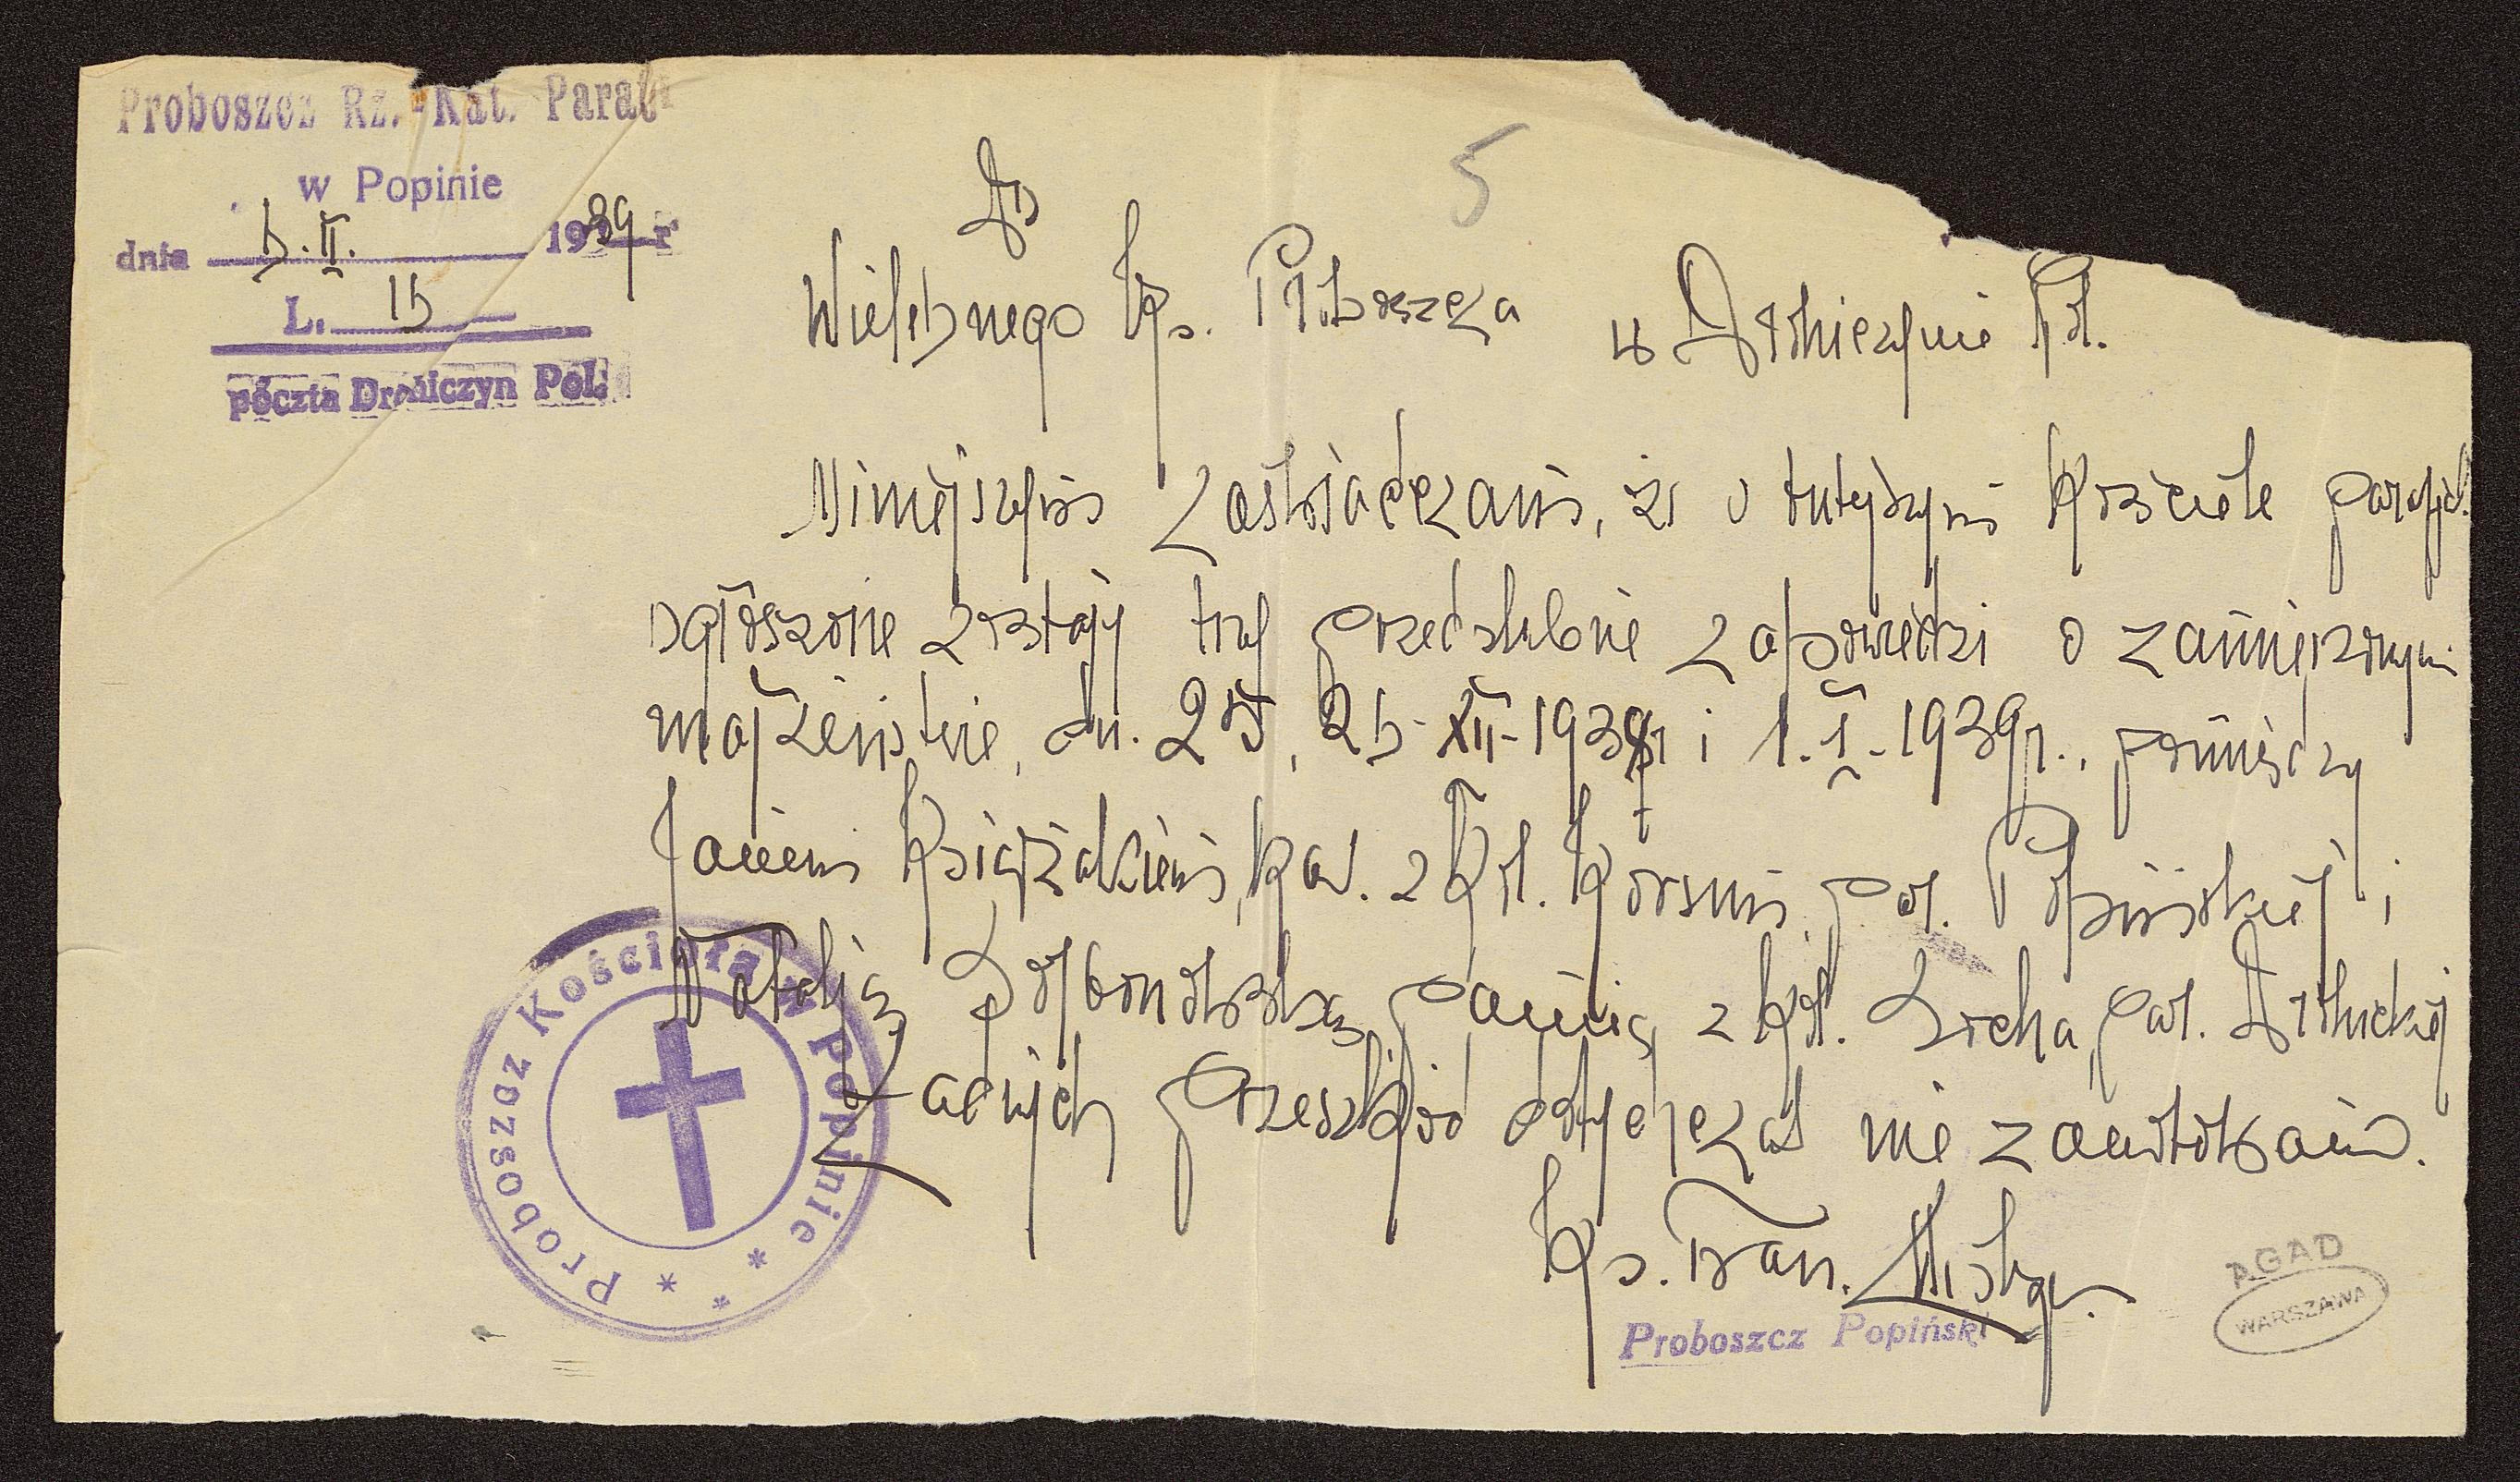 Proboszcz Rz.-Kat. Parafi
w Popinie
dnia 5.II. 1939 r
L. 15
poczta Drohiczyn Pol.
5
Do
Wielebnego Ks. Proboszcza w Drohiczynie Pol.
Niniejszym zaświadczam, że w tutejszym Kościele parafjal.
ogłoszone zostały trzy przedślubne zapowiedzi o zamierzonym
małżeństwie, dn. 25, 26-XII-1938r i 1.I-1939r., pomiędzy
Janem Książakiem, kaw. z kol. par. Popińskiej i
Natalją panną z kol. Socha, par. Drohickiej
Żadnych przeszkód dotychczas nie zanotowano.
Ks. Fran.
Proboszcz Popiński
Proboszcz Kościoła w Popinie
AGAD
WARSZAWA